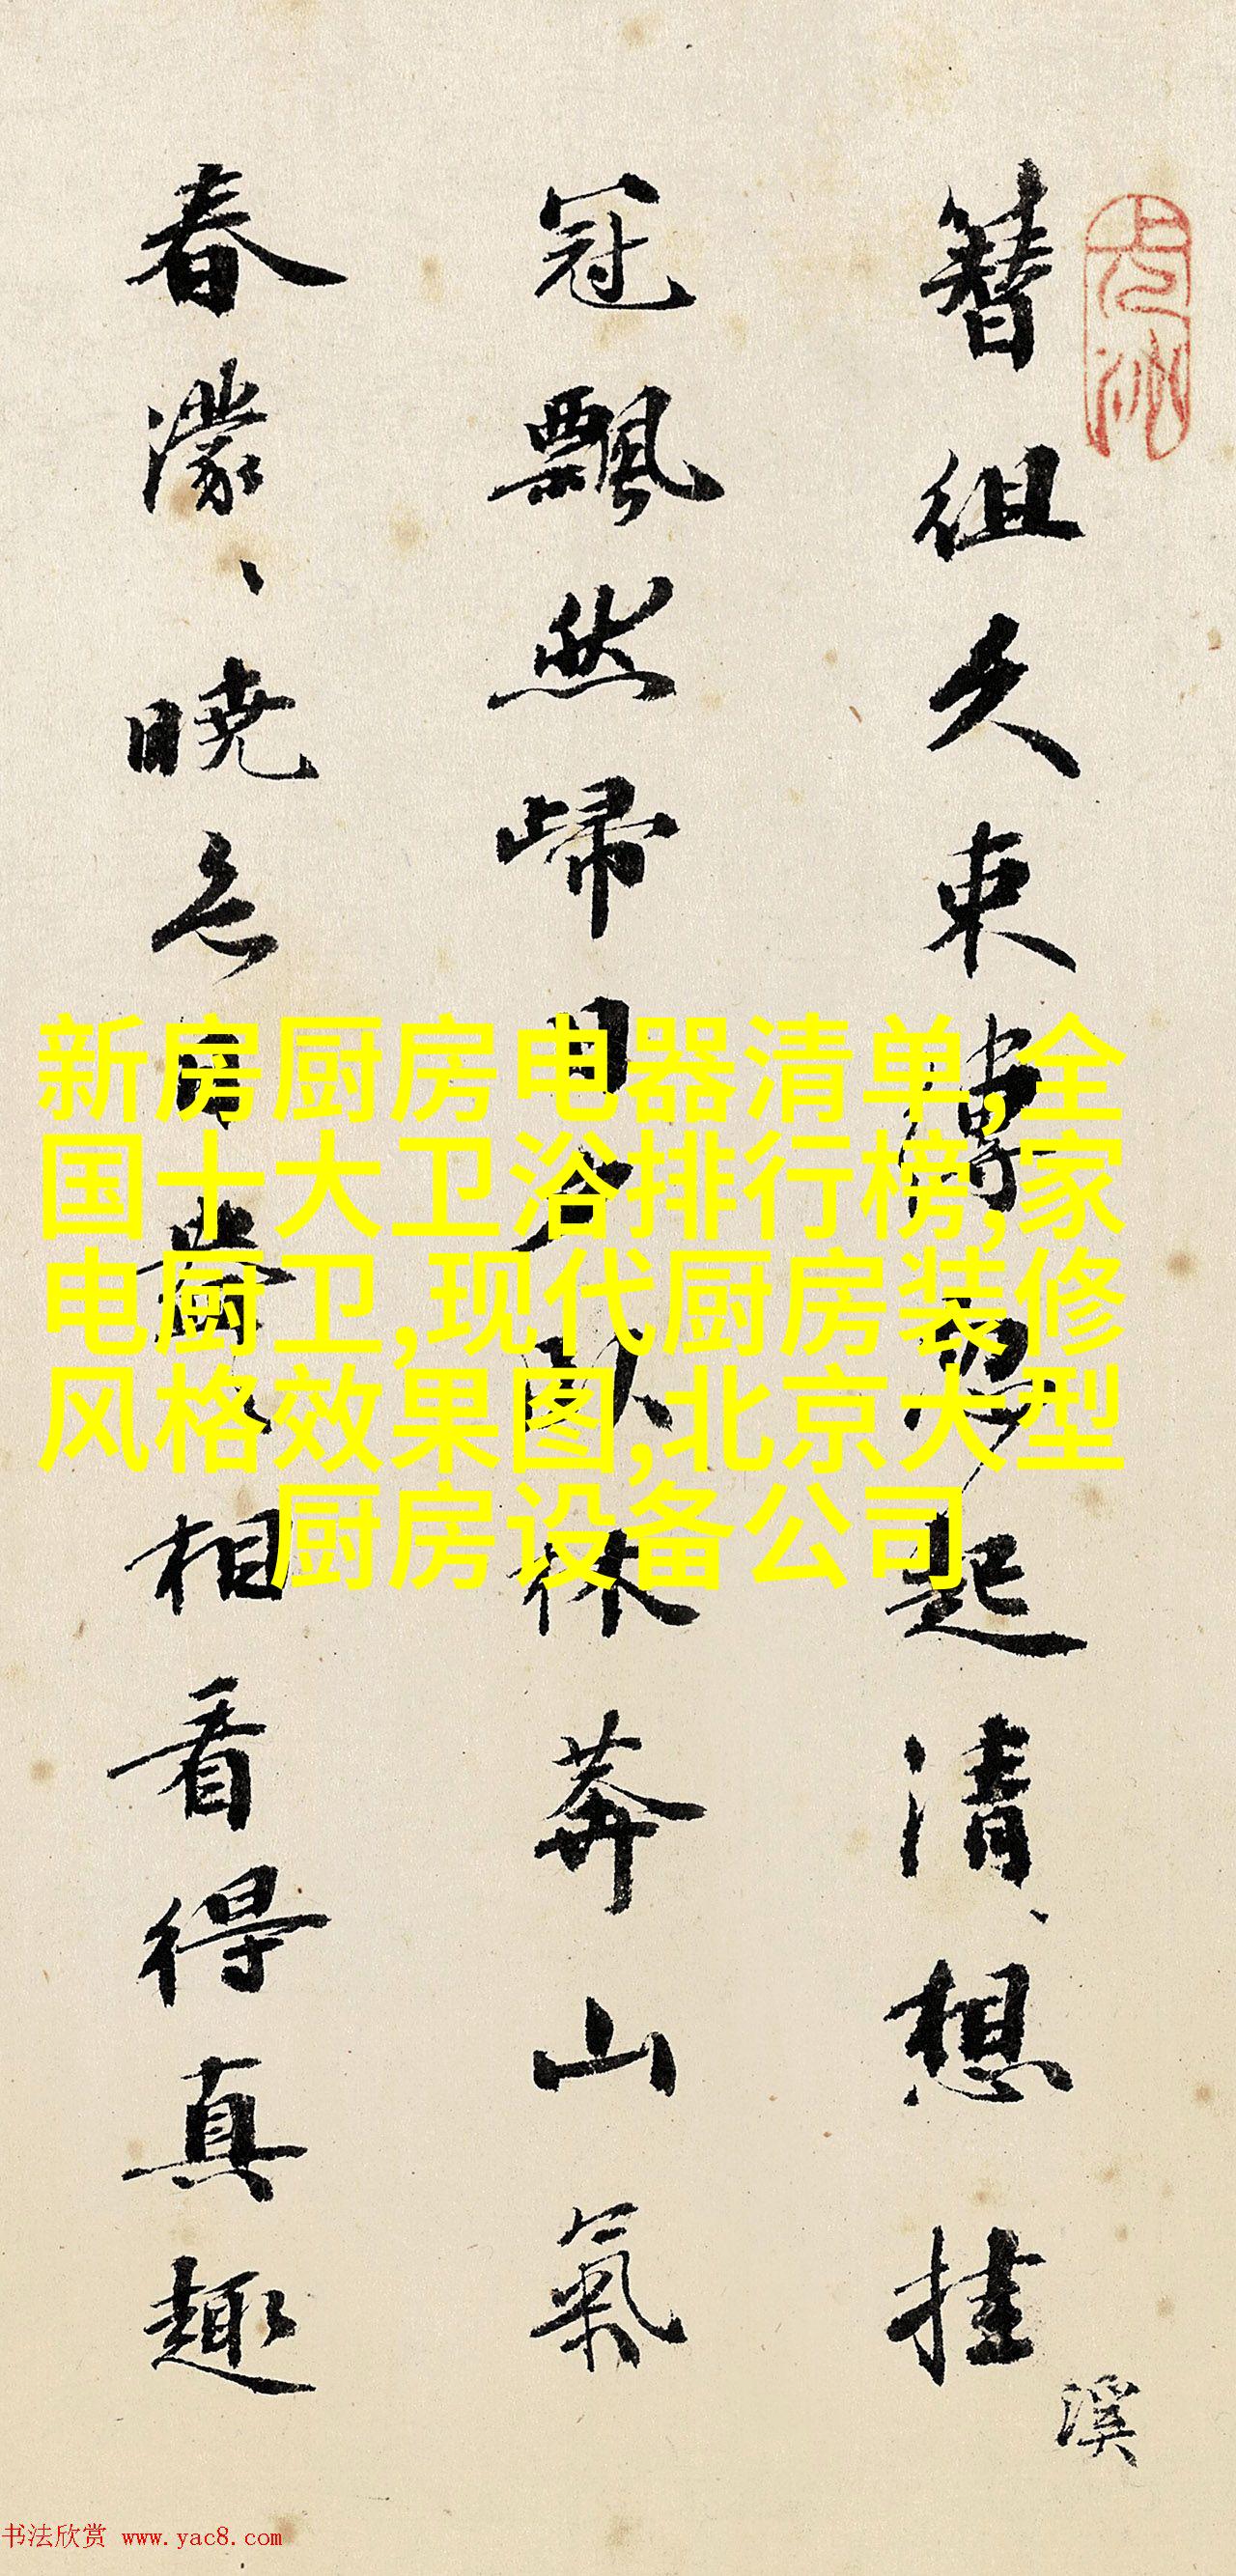 簪組久束縛忽起清、想挂
溪
冠飄然歸日夕臥林莽山氣
春濛、曉色相看得真趣
新房厨房电器清单,全
国十大卫浴排行榜,家
电厨卫,现代厨房装修
风格效果图,北京大型
厨房设备公司
书法欣赏 www.yac8.com